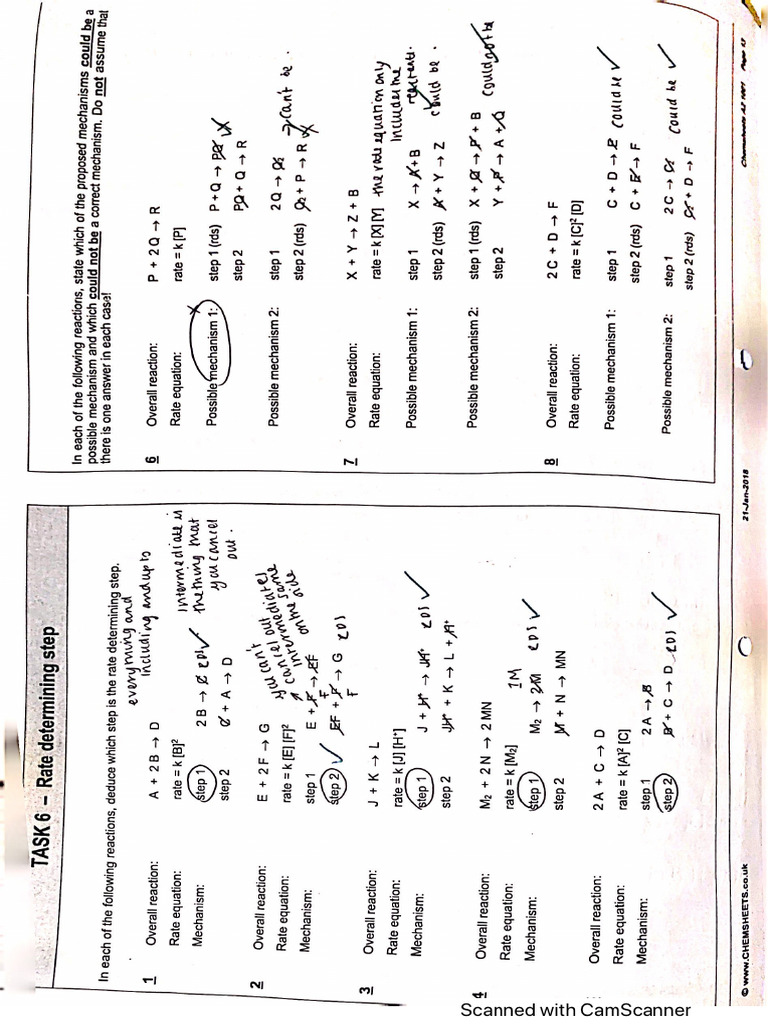 TASK 6 – Rate determining step
In each of the following reactions, deduce which step is the rate determining step.
everything and
including and up to
1 Overall reaction: A + 2B → D
Rate equation: rate = k [B]²
Mechanism: step 1 2B → C RDS ✓
step 2 C + A → D
Intermediate is
the thing that
you cancel
out.
2 Overall reaction: E + 2F → G
Rate equation: rate = k [E] [F]²
Mechanism: step 1 E + F → EF
step 2 ✓ EF + F → G RDS
F
F
you can't
cancel out
intermediates
on the same
side
3 Overall reaction: J + K → L
Rate equation: rate = k [J] [H⁺]
Mechanism: step 1 J + H⁺ → JH⁺ RDS ✓
step 2 JH⁺ + K → L + H⁺
4 Overall reaction: M₂ + 2N → 2MN
Rate equation: rate = k [M₂]
1M
Mechanism: step 1 M₂ → 2M RDS ✓
step 2 M + N → MN
Overall reaction: 2A + C → D
Rate equation: rate = k [A]² [C]
Mechanism: step 1 2A → B
step 2 B + C → D RDS ✓
© www.CHEMSHEETS.co.uk 21-Jan-2018 Chemsheets A2 1001 Page 17
In each of the following reactions, state which of the proposed mechanisms could be a
possible mechanism and which could not be a correct mechanism. Do not assume that
there is one answer in each case!
6 Overall reaction: P + 2Q → R
Rate equation: rate = k [P]
Possible mechanism 1: x step 1 (rds) P + Q → PQ x
step 2 PQ + Q → R
Possible mechanism 2: step 1 2Q → Q₂
step 2 (rds) Q₂ + P → R x
→ can't be.
7 Overall reaction: X + Y → Z + B
Rate equation: rate = k [X] [Y] the rate equation only
includes the
reactants.
Possible mechanism 1: step 1 X → A + B
step 2 (rds) A + Y → Z could be.
Possible mechanism 2: step 1 (rds) X + Q → P + B
step 2 Y + P → A + Q could not be
8 Overall reaction: 2C + D → F
Rate equation: rate = k [C]² [D]
Possible mechanism 1: step 1 C + D → E could be ✓
step 2 (rds) C + E → F
Possible mechanism 2: step 1 2C → C₂ could be ✓
step 2 (rds) C₂ + D → F
Scanned with CamScanner